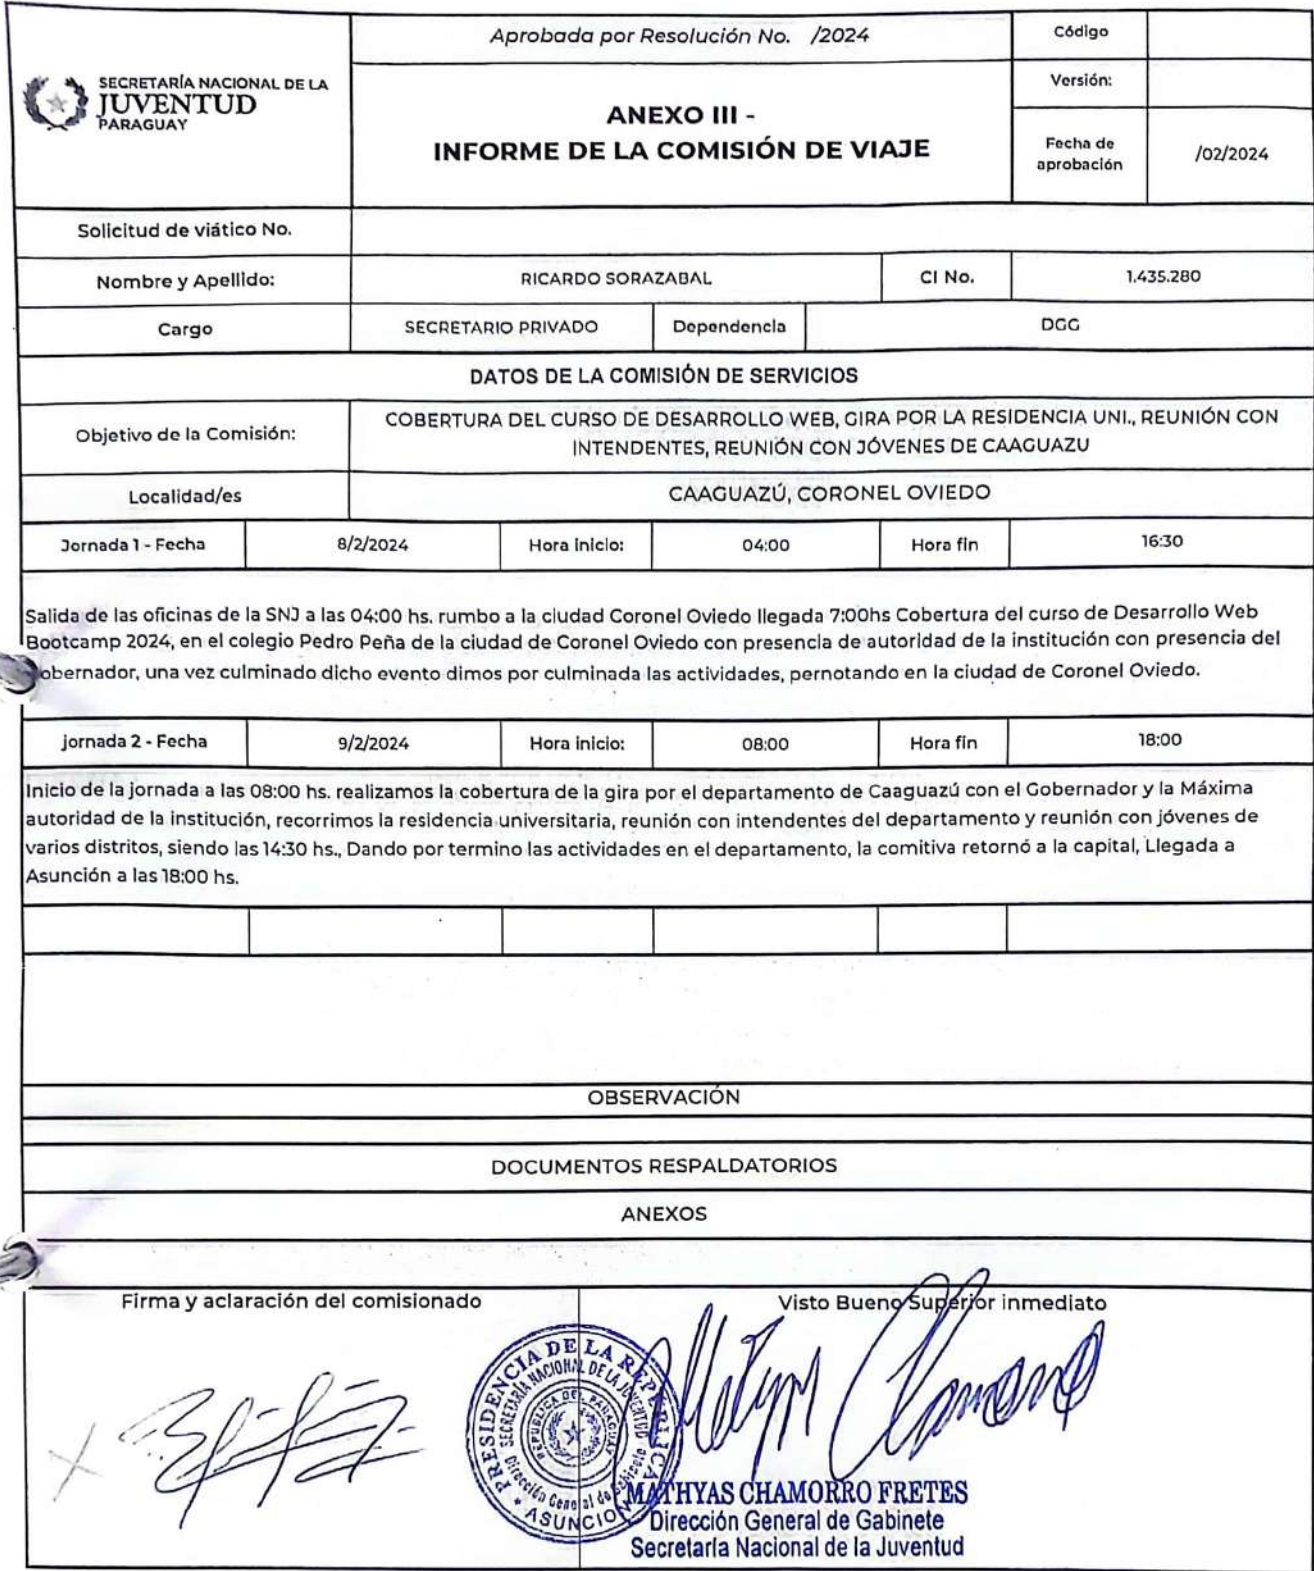 SECRETARÍA NACIONAL DE LA
JUVENTUD
PARAGUAY
Aprobada por Resolución No. /2024
ANEXO III -
INFORME DE LA COMISIÓN DE VIAJE
Código
Versión:
Fecha de
aprobación
/02/2024
Solicitud de viático No.
Nombre y Apellido:
RICARDO SORAZABAL
CI No.
1.435.280
Cargo
SECRETARIO PRIVADO
Dependencia
DGG
DATOS DE LA COMISIÓN DE SERVICIOS
Objetivo de la Comisión:
COBERTURA DEL CURSO DE DESARROLLO WEB, GIRA POR LA RESIDENCIA UNI., REUNIÓN CON
INTENDENTES, REUNIÓN CON JÓVENES DE CAAGUAZU
Localidad/es
CAAGUAZÚ, CORONEL OVIEDO
Jornada 1 - Fecha
8/2/2024
Hora inicio:
04:00
Hora fin
16:30
Salida de las oficinas de la SNJ a las 04:00 hs. rumbo a la ciudad Coronel Oviedo llegada 7:00hs Cobertura del curso de Desarrollo Web
Bootcamp 2024, en el colegio Pedro Peña de la ciudad de Coronel Oviedo con presencia de autoridad de la institución con presencia del
obernador, una vez culminado dicho evento dimos por culminada las actividades, pernotando en la ciudad de Coronel Oviedo.
jornada 2 - Fecha
9/2/2024
Hora inicio:
08:00
Hora fin
18:00
Inicio de la jornada a las 08:00 hs. realizamos la cobertura de la gira por el departamento de Caaguazú con el Gobernador y la Máxima
autoridad de la institución, recorrimos la residencia universitaria, reunión con intendentes del departamento y reunión con jóvenes de
varios distritos, siendo las 14:30 hs., Dando por termino las actividades en el departamento, la comitiva retornó a la capital, Llegada a
Asunción a las 18:00 hs.
OBSERVACIÓN
DOCUMENTOS RESPALDATORIOS
ANEXOS
Firma y aclaración del comisionado
Visto Bueno Superior inmediato
PRESIDENCIA DE LA REPÚBLICA
SECRETARÍA NACIONAL DE LA JUVENTUD
REPÚBLICA DEL PARAGUAY
Dirección General de Gabinete
* ASUNCION
Mathyas Chamorro
MATHYAS CHAMORRO FRETES
Dirección General de Gabinete
Secretaría Nacional de la Juventud